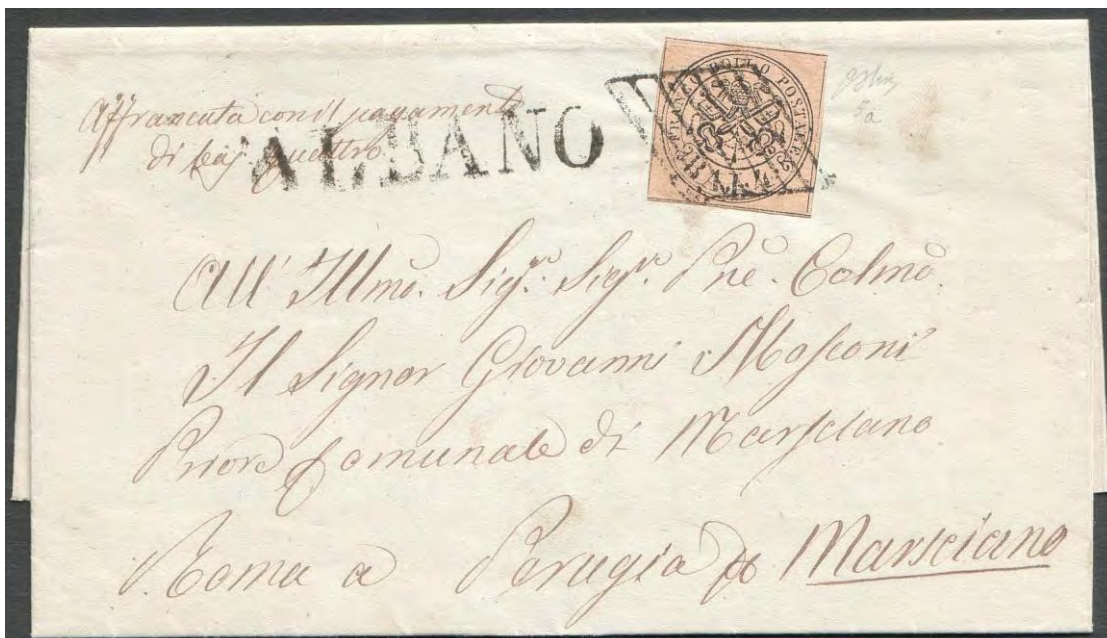 Affrancata con il pagamento
di baj. quattro
ALBANO
FRANCO BOLLO POSTALE
BAJ. 4
5a
All' Illmo. Sigr. Sigr. Pne. Colmo.
Il Signor Giovanni Mosconi
Priore Comunale di Marsciano
Roma a Perugia p Marsciano